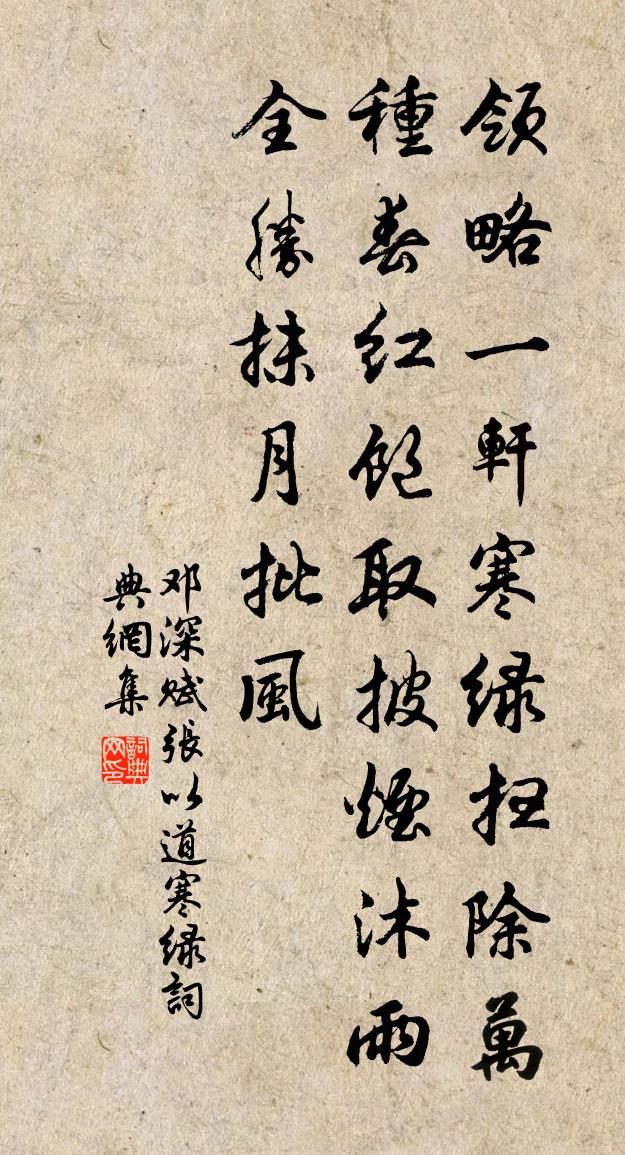 領略一軒寒緑扫除萬
種春紅飽取披煙沐雨
全勝抹月批風
邓深赋張以道寒緑詞
典網集
詞典网印